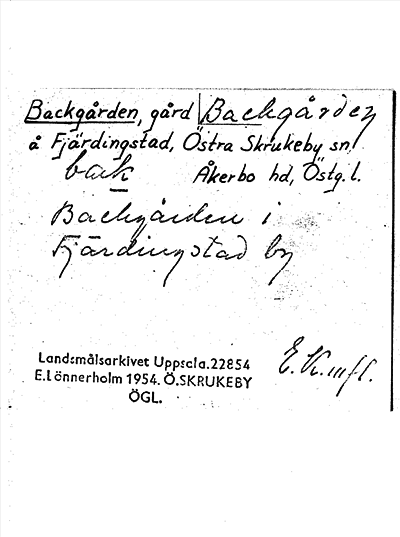 Backgården, gård Backgården
å Fjärdingstad, Östra Skrukeby sn,
back Åkerbo hd, Östg.l.
Backgården i
Fjärdingstad by
Landsmålsarkivet Uppsala.22854
E.Lönnerholm 1954. Ö.SKRUKEBY
ÖGL.
E. K. mfl.